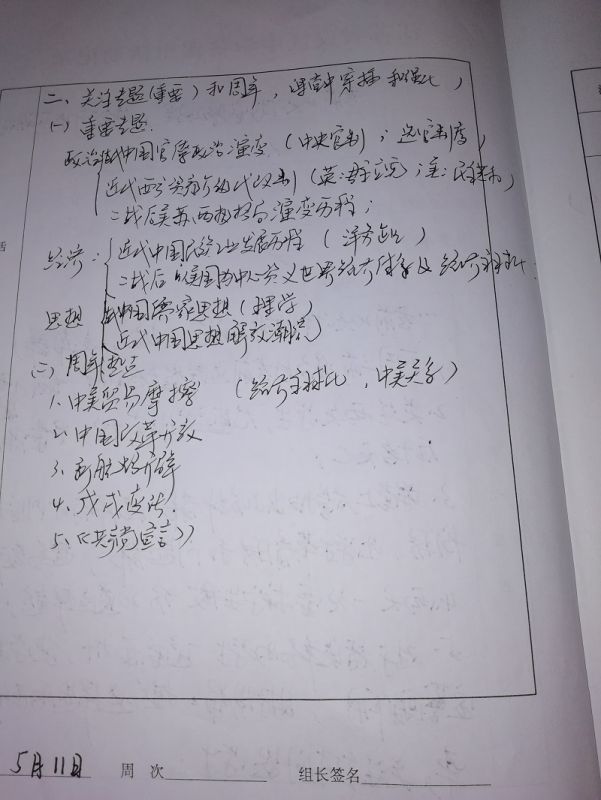 二、关注专题(重要)和周年,课堂中穿插和强化,
(一)重要专题.
政治 古代中国官僚政治演变(中央官制;选官制度)
近代西方资产阶级代议制(英:君主立宪;美:民主共和)
二战后美苏两极格局演变历程;
经济:近代中国民族工业发展历程(洋务企业)
二战后以美国为中心资本主义世界经济体系及经济全球化.
思想 古代中国儒家思想(理学)
近代中国思想解放潮流
(二)周年热点
1、中美贸易摩擦 (经济全球化,中美关系)
2、中国改革开放
3、新航路开辟
4、戊戌变法.
5、《共产党宣言》
5月11日 周 次 组长签名